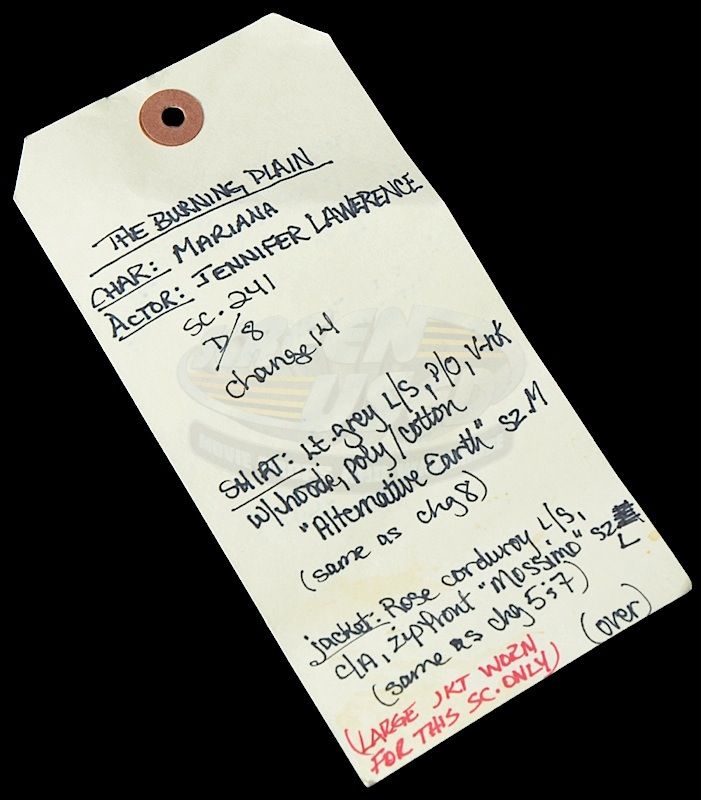 THE BURNING PLAIN
CHAR: MARIANA
ACTOR: JENNIFER LAWERENCE
SC. 241
D/8
change 14
SHIRT: Lt. grey L/S, P/O, V-nk
w/hoode, poly/cotton
"Alternative Earth" SZ. M
(same as chg 8)
jacket: Rose corduroy L/S,
c/A, zip front "Mossimo" SZ L
(same as chg 5:7) (over)
(LARGE JKT WORN
FOR THIS SC. ONLY)